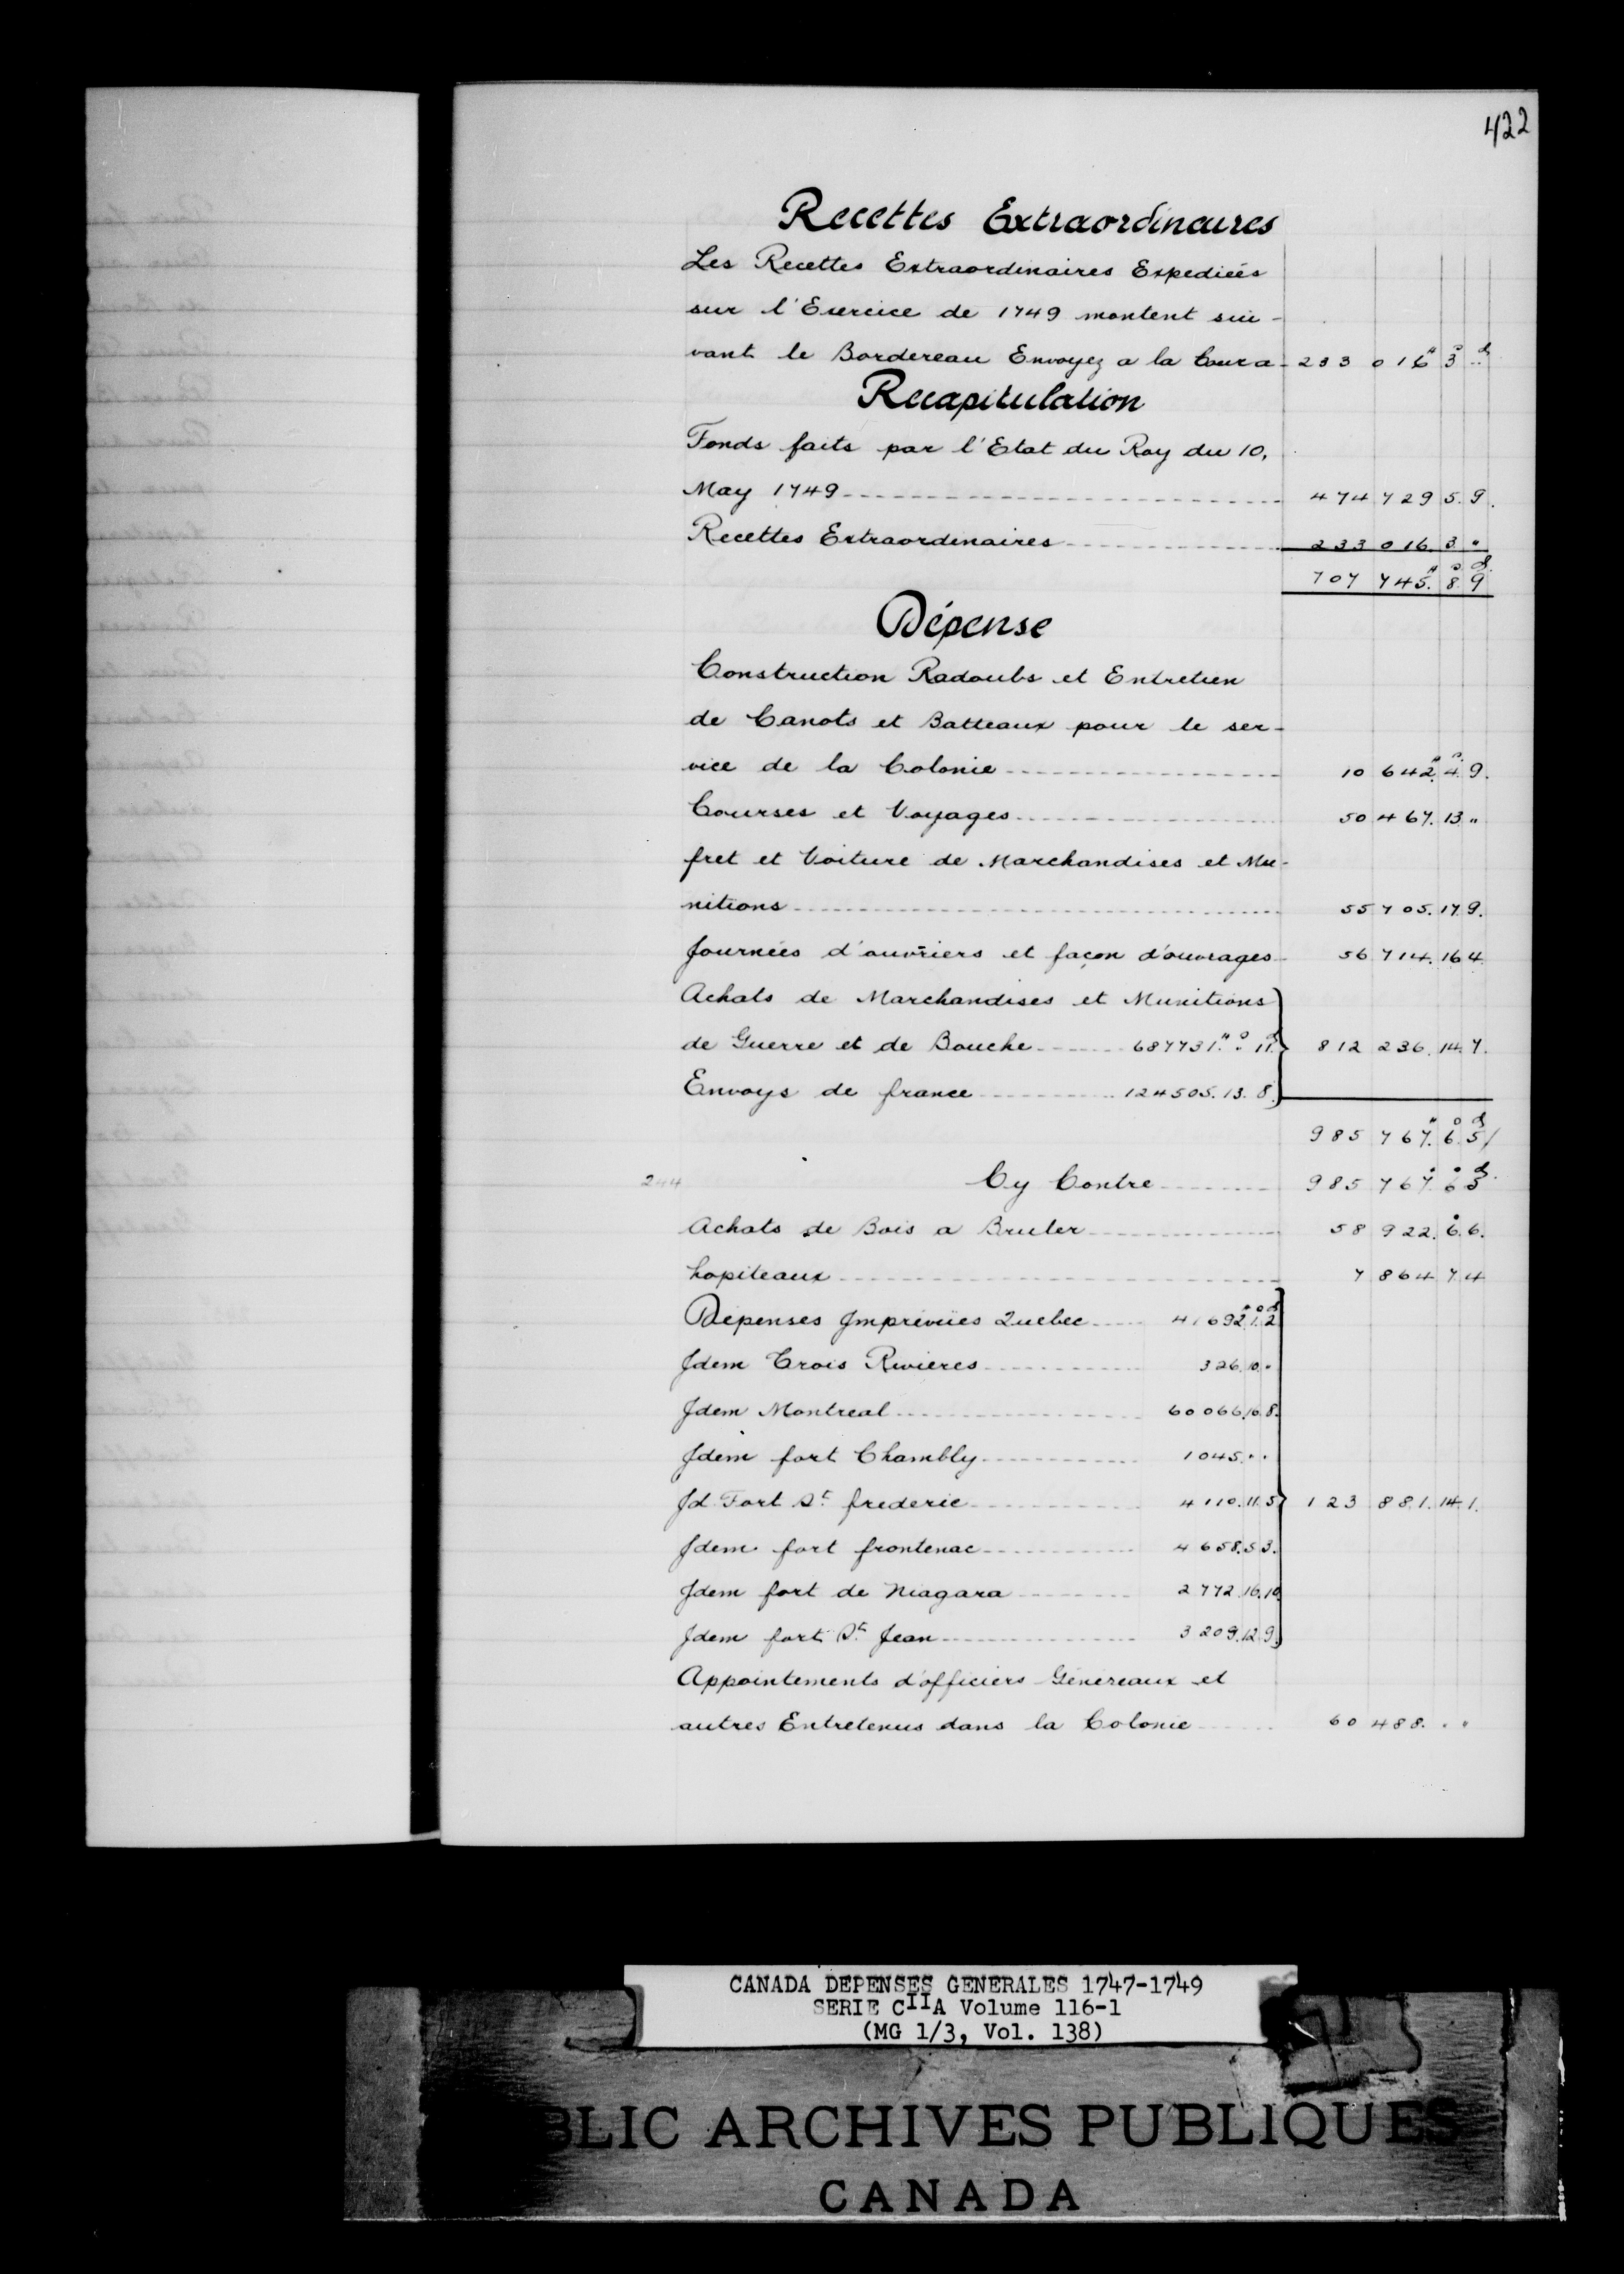 422
Recettes Extraordinaires
Les Recettes Extraordinaires Expediées
sur l'Exercice de 1749 montent sui-
vant le Bordereau Envoyez a la Cour a 233 016" 3s ..d
Recapitulation
Fonds faits par l'Etat du Roy du 10,
May 1749 474 729 5. 9.
Recettes Extraordinaires 233 016. 3 "
707 745." 8s 9d
Dépense
Construction Radoubs et Entretien
de Canots et Batteaux pour le ser-
vice de la Colonie 10 642." 4s 9.
Courses et Voyages 50 467. 13 "
fret et Voiture de Marchandises et Mu-
nitions 55 705. 17 9.
Journées d'ouvriers et façon d'ouvrages 56 714. 16 4
Achats de Marchandises et Munitions
de Guerre et de Bouche 687731." "s 11d } 812 236. 14. 7.
Envoys de france 124505. 13. 8
985 767." 6s 5d/
244 Cy Contre 985 767" 6s 5d
Achats de Bois a Bruler 58 922. 6. 6.
hopiteaux 7 864 7 4
Dépenses Imprévües Quebec 41692" 1s 2d
Idem Trois Rivieres 326. 10. "
Idem Montreal 60066. 16 8.
Idem fort Chambly 1045. " "
Id Fort St frederic 4110. 11. 5 } 123 881. 14. 1.
Idem fort frontenac 4658. 5 3.
Idem fort de Niagara 2772. 16. 10
Idem fort St Jean 3209. 12 9
Appointements d'officiers Génereaux et
autres Entretenus dans la Colonie 60 488. " "
CANADA DEPENSES GENERALES 1747-1749
SERIE CIIA Volume 116-1
(MG 1/3, Vol. 138)
BLIC ARCHIVES PUBLIQUES
CANADA